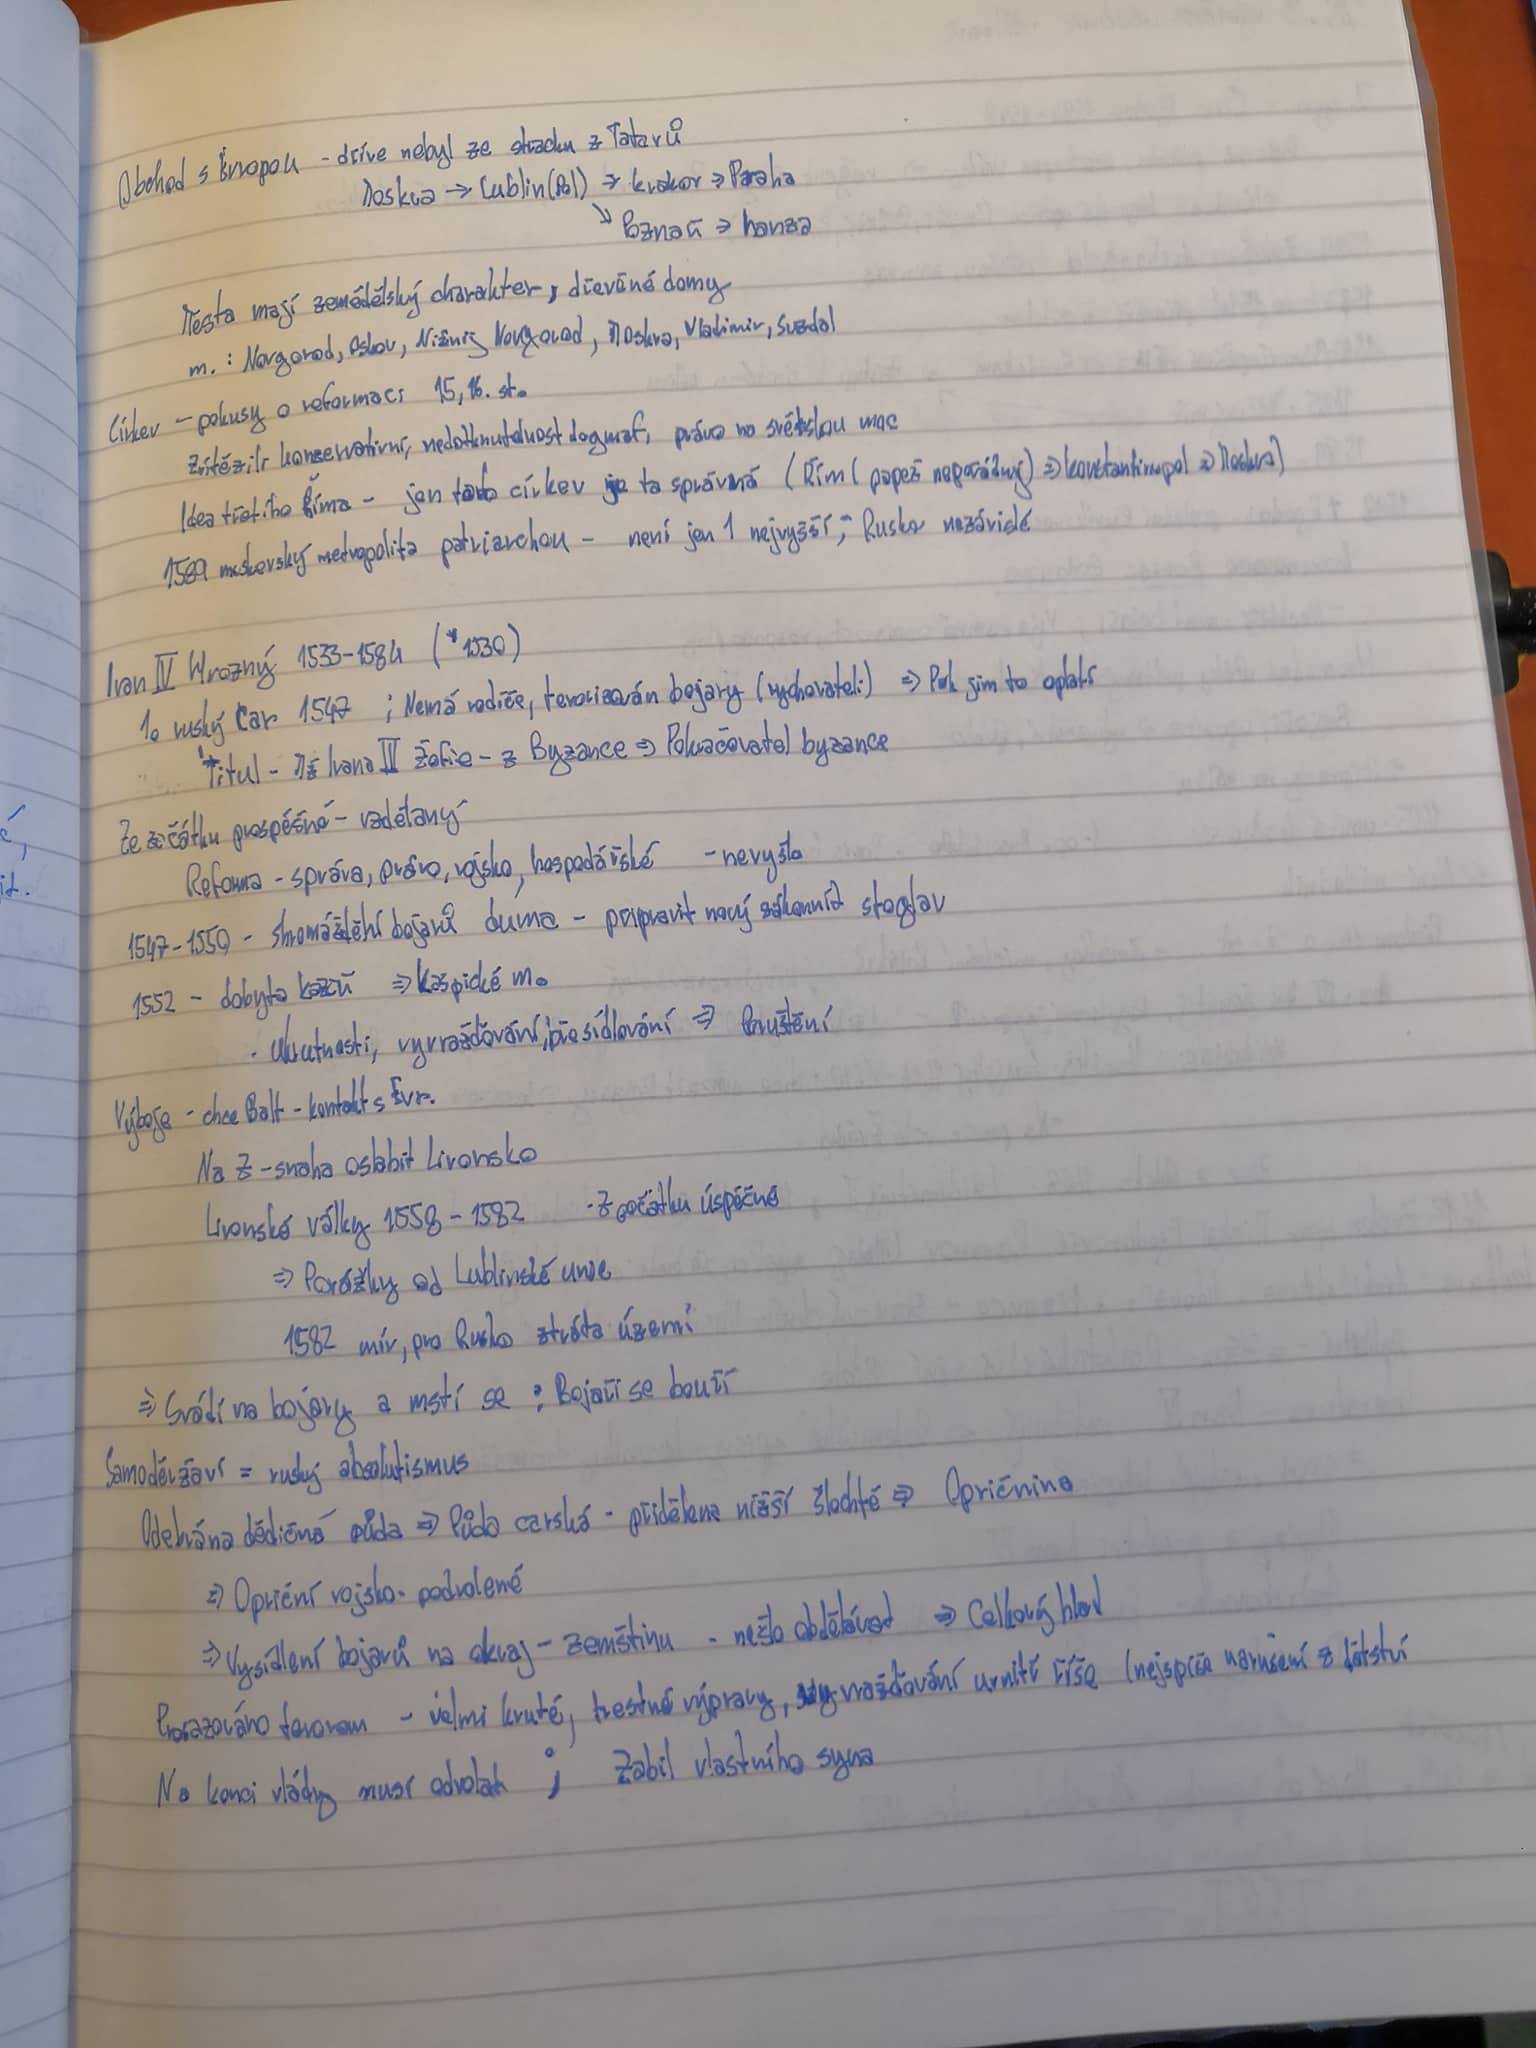 Obchod s Evropou - dříve nebyl ze strachu z Tatarů
Moskva → Lublin (Pol) ⇒ Krakov ⇒ Praha
↘ Poznaň ⇒ hanza
Města mají zemědělský charakter, dřevěné domy
m.: Novgorod, Pskov, Nižnij Novgorod, Moskva, Vladimir, Suzdal
Církev - pokusy o reformaci 15,16. st.
Zvítězili konzervativní, nedotknutelnost dogmat, právo na světskou moc
Idea třetího Říma - jen tato církev je ta správná (Řím (papež nepořádný) ⇒ Konstantinopol ⇒ Moskva)
1589 moskevský metropolita patriarchou - není jen 1 nejvyšší; Rusko nezávislé
Ivan IV Hrozný 1533-1584 (*1530)
1. ruský car 1547 ; Nemá rodiče, terorizován bojary (vychovateli) ⇒ Pak jim to oplatí
Titul - Mž Ivana III Žofie - z Byzance ⇒ Pokračovatel byzance
Ze začátku prospěšné - vzdělaný
Reforma - správa, právo, vojsko, hospodářské - nevyšlo
1547-1550 - shromáždění bojarů duma - připravit nový zákonník stoglav
1552 - dobyta Kazaň ⇒ Kaspické m.
· Ukrutnosti, vyvražďování, přesídlování ⇒ Poruštění
Výboje - chce Balt - kontakt s Evr.
Na Z - snaha oslabit Livonsko
Livonské války 1558-1582 · Z počátku úspěšné
⇒ Porážky od Lublinské unie
1582 mír, pro Rusko ztráta území
⇒ Svádí na bojary a mstí se ; Bojaři se bouří
Samoděržaví = ruský absolutismus
Odebrána dědičná půda ⇒ Půda carská - přidělena nižší šlechtě ⇒ Opričnina
⇒ Opriční vojsko - podvolené
⇒ Vysídlení bojarů na okraj - zemština - nešlo obdělávat ⇒ Celkový hlad
Prosazováno terorem - velmi kruté, trestné výpravy, vyvražďování uvnitř říše (nejspíše narušení z dětství
Na konci vlády musí odvolat ; Zabil vlastního syna